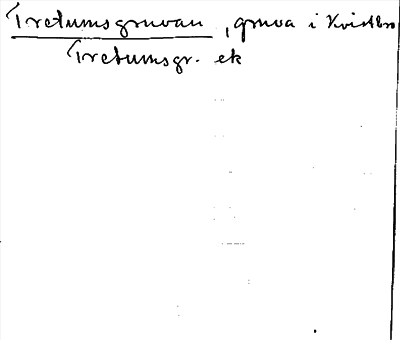 Tretumsgruvan, gruva i Kvistbro
Tretumsgr. ek